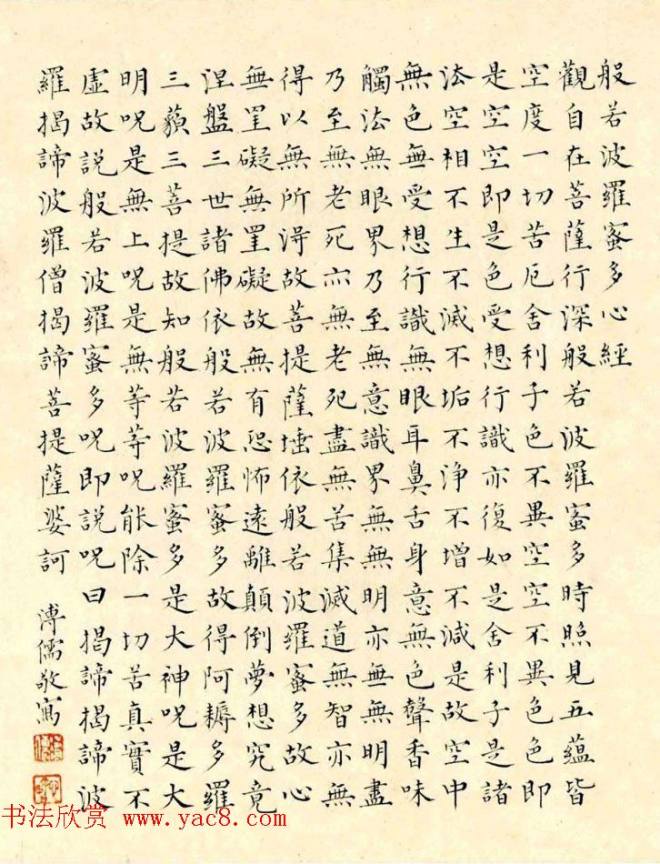 般若波羅蜜多心經
觀自在菩薩行深般若波羅蜜多時照見五蘊皆
空度一切苦厄舍利子色不異空空不異色色即
是空空即是色受想行識亦復如是舍利子是諸
法空相不生不滅不垢不淨不增不減是故空中
無色無受想行識無眼耳鼻舌身意無色聲香味
觸法無眼界乃至無意識界無無明亦無無明盡
乃至無老死亦無老死盡無苦集滅道無智亦無
得以無所得故菩提薩埵依般若波羅蜜多故心
無罣礙無罣礙故無有恐怖遠離顛倒夢想究竟
涅盤三世諸佛依般若波羅蜜多故得阿耨多羅
三藐三菩提故知般若波羅蜜多是大神呪是大
明呪是無上呪是無等等呪能除一切苦真實不
虛故說般若波羅蜜多呪即說呪曰揭諦揭諦波
羅揭諦波羅僧揭諦菩提薩婆訶
溥儒敬寫
书法欣赏 www.yac8.com